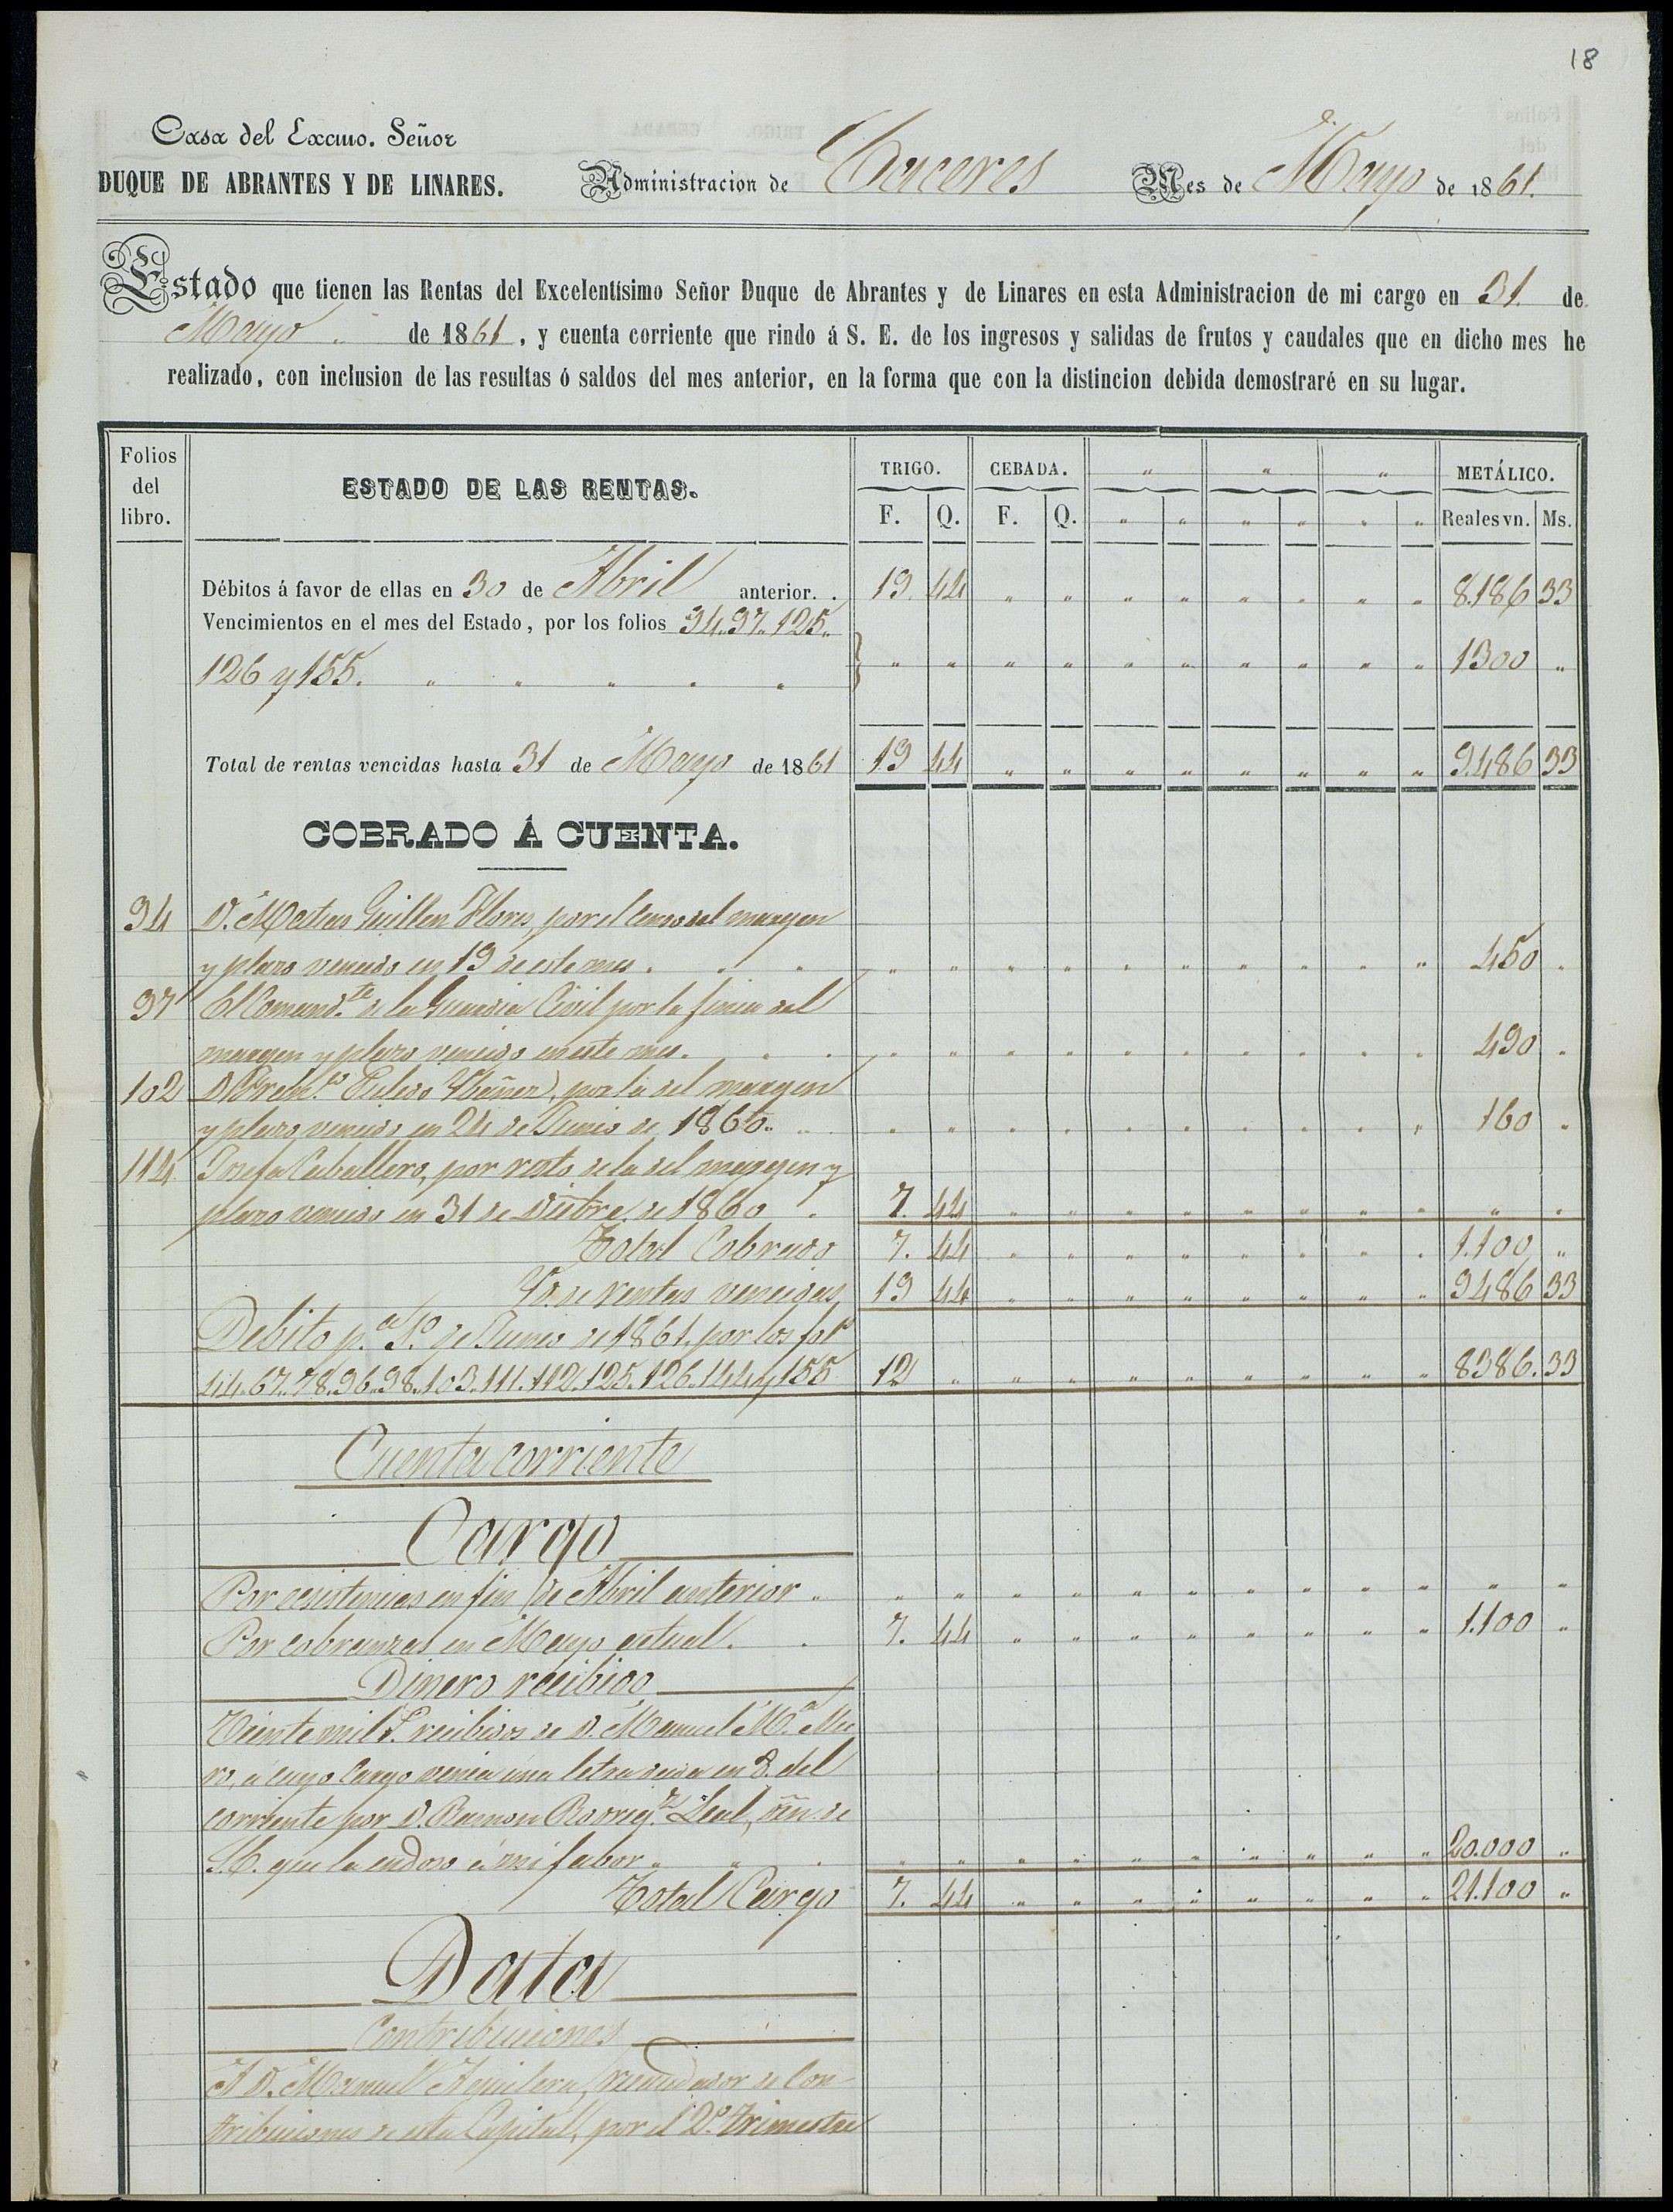 18
Casa del Excmo. Señor
DUQUE DE ABRANTES Y DE LINARES.
Administracion de Caceres Mes de Mayo de 1861.
Estado que tienen las Rentas del Excelentísimo Señor Duque de Abrantes y de Linares en esta Administracion de mi cargo en 31 de
Mayo de 1861, y cuenta corriente que rindo á S. E. de los ingresos y salidas de frutos y caudales que en dicho mes he
realizado, con inclusion de las resultas ó saldos del mes anterior, en la forma que con la distincion debida demostraré en su lugar.
Folios del libro. ESTADO DE LAS RENTAS. TRIGO. CEBADA. " " " METÁLICO.
F. Q. F. Q. " " " " " " Reales vn. Ms.
Débitos á favor de ellas en 30 de Abril anterior. . 19. 44 " " " " " " " " 8.186 33
Vencimientos en el mes del Estado, por los folios 94..97..125..
126 y 155. " " " " " " " " " " " " " " " 1300 "
Total de rentas vencidas hasta 31 de Mayo de 1861 19 44 " " " " " " " " 9.486 33
COBRADO Á CUENTA.
94 D. Matias Guillen Flores, por el censo del margen
y plazo vencido en 19 de este mes . . . " " " " " " " " " " 450 "
97 El Comand.te de la Guardia Civil por la finca del
margen y plazo vencido en este mes. . . " " " " " " " " " " 490 "
102 Toledo Ybañez, por la del margen
y plazo vencido en 24 de Junio de 1860.. " " " " " " " " " " " 160 "
114 Josefa Caballero, por resto de la del margen y
plazo vencido en 31 de Dicbre. de 1860 . 7. 44 " " " " " " " " " "
Total Cobrado 7. 44 " " " " " " " " 1.100 "
Yd. de rentas vencidas 19 44 " " " " " " " " 9486 33
Debito p.a 1.o de Junio de 1861. por los fol.s
44..67..78..96..98..103.111.112.125.126.144 y 155 12 " " " " " " " " " 8386. 33
Cuenta corriente
Cargo
Por existencias en fin de Abril anterior " " " " " " " " " " " " "
Por cobranzas en Mayo actual. . 7. 44 " " " " " " " " 1.100 "
Dinero recibido
Veinte mil r.s recibidos de D. Manuel M.a Mu
ro, á cuyo cargo venia una letra dada en 8. del
corriente por D. Ramon Rodrig.z Leal, órn. de
S.E. que la endosó á mi fabor " " . " " " " " " " " " " 20.000 "
Total Cargo 7. 44 " " " " " " " " 21.100 "
Data
Contribuciones
A D. Manuel Aguilera, recaudador de Con-
tribuciones de esta Capital, por el 2.o trimestre